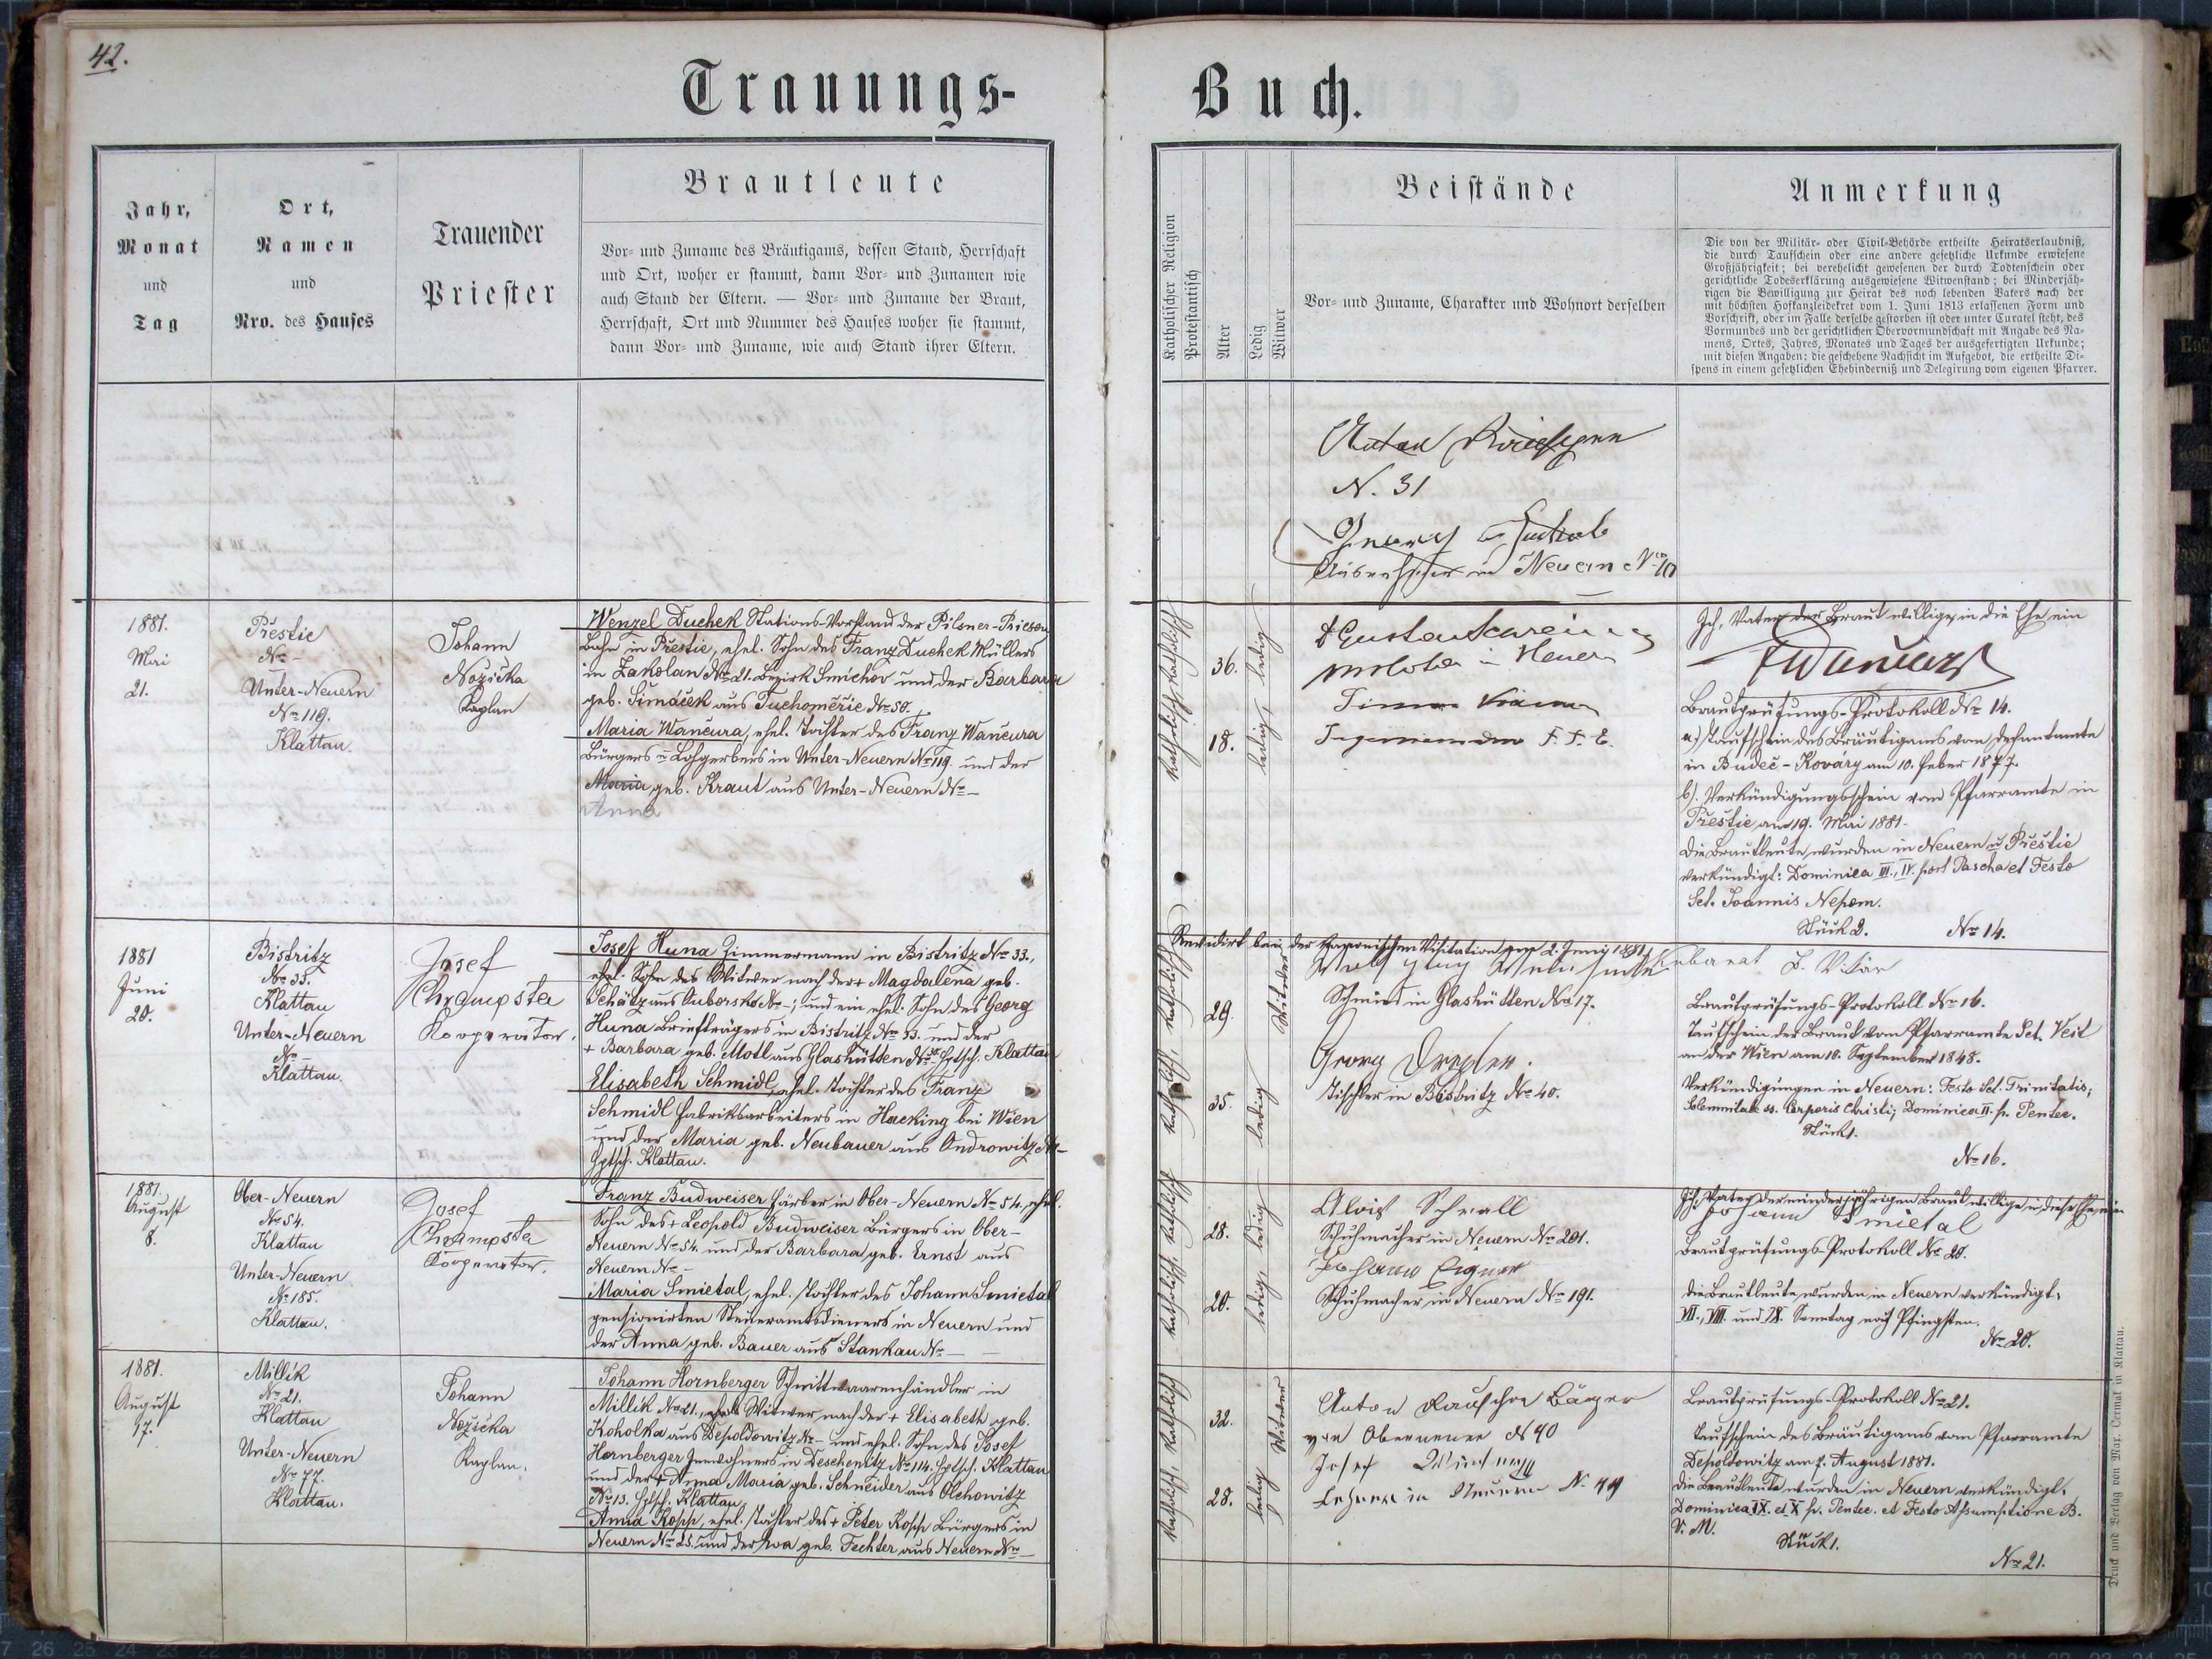 42.
Trauungs-
Buch.
Jahr,
Monat
und
Tag
Ort,
Namen
und
Nro. des Hauses
Trauender
Priester
Brautleute
Vor- und Zuname des Bräutigams, dessen Stand, Herrschaft
und Ort, woher er stammt, dann Vor- und Zunamen wie
auch Stand der Eltern. — Vor- und Zuname der Braut,
Herrschaft, Ort und Nummer des Hauses woher sie stammt,
dann Vor- und Zuname, wie auch Stand ihrer Eltern.
Katholischer Religion
Protestantisch
Alter
Ledig
Witwer
Beistände
Vor- und Zuname, Charakter und Wohnort derselben
Anmerkung
Die von der Militär- oder Civil-Behörde ertheilte Heiratserlaubniß,
die durch Taufschein oder eine andere gesetzliche Urkunde erwiesene
Großjährigkeit; bei verehelicht gewesenen der durch Todtenschein oder
gerichtliche Todeserklärung ausgewiesene Witwenstand; bei Minderjäh-
rigen die Bewilligung zur Heirat des noch lebenden Vaters nach der
mit höchsten Hofkanzleidekret vom 1. Juni 1813 erlassenen Form und
Vorschrift, oder im Falle derselbe gestorben ist oder unter Curatel steht, des
Vormundes und der gerichtlichen Obervormundschaft mit Angabe des Na-
mens, Ortes, Jahres, Monates und Tages der ausgefertigten Urkunde;
mit diesen Angaben: die geschehene Nachsicht im Aufgebot, die ertheilte Di-
spens in einem gesetzlichen Ehehinderniß und Delegirung vom eigenen Pfarrer.
Anton
N. 31
in Neuern No 70
1881.
Mai
21.
Přestic
No -
Unter-Neuern
No 119.
Klattau.
Johann
Nožička
Kaplan
Wenzel Duchek Stations-Vorstand der Pilsner-Priesen
Bahn in Přestic, ehel. Sohn des Franz Duchek Müllers
in Zakolan No 21. Bezirk Smichov und der Barbara
geb. Šimáček aus Tuchoměřic No 50.
Maria Wančura, ehel. Tochter des Franz Wančura
Bürgers u Lohgerbers in Unter-Neuern No 119. und der
Maria geb. Kraut aus Unter-Neuern No -
Anna
katholisch, katholisch
36.
18.
ledig, ledig
in Neuern
F. J. E.
Ich, Vater der Braut willige in die Ehe ein
FWančura
Brautprüfungs-Protokoll No 14.
a) Taufschein des Bräutigams vom Dechantamte
in Budeč-Kováry am 10. Feber 1877.
b). Verkündigungsschein vom Pfarramte in
Přestic am 19. Mai 1881.
Die Brautleute wurden in Neuern u Přestic
verkündigt: Dominica III., IV. post Pascha et Festo
Sct. Joannis Nepom.
Stück 2. No 14.
Revidirt bei der kanonischen Visitation am 2. Juny 1881
B. Vikär
1881
Juni
20.
Bistritz
No 33.
Klattau
Unter-Neuern
No -
Klattau.
Josef
Chrampsta
Kooperator.
Josef Huna Zimmermann in Bistritz No 33.,
ehel. Sohn des Witwer nach der + Magdalena geb.
Schätz aus Auborsko No -; und ein ehel. Sohn des Georg
Huna Briefträgers in Bistritz No 33. und der
+ Barbara geb. Motl aus Glashütten No Hptsch. Klattau
Elisabeth Schmidl, ehel. Tochter des Franz
Schmidl Fabriksarbeiters in Hacking bei Wien
und der Maria geb. Neubauer aus Androwitz No -
Hptsch. Klattau.
katholisch, katholisch
29.
35.
Witwer
ledig
Schmied in Glashütten No 17.
Georg
Tischler in Bistritz No 40.
Brautprüfungs-Protokoll No 16.
Taufschein der Braut vom Pfarramte Sct. Veit
an der Wien am 10. September 1848.
Verkündigungen in Neuern: Festo Sct. Trinitatis;
Solemnitate ss. Corporis Christi; Dominica II. p. Pentec.
Stück 1.
No 16.
1881.
August
8.
Ober-Neuern
No 54.
Klattau
Unter-Neuern
No 185.
Klattau.
Josef
Chrampsta
Kooperator.
Franz Budweiser Färber in Ober-Neuern No 54., ehel.
Sohn des + Leopold Budweiser Bürgers in Ober-
Neuern No 54. und der Barbara geb. Ernst aus
Neuern No -
Maria Smietal, ehel. Tochter des Johann Smietal
pensionirten Steueramtsdieners in Neuern und
der Anna geb. Bauer aus Stankau No -
katholisch, katholisch
28.
20.
ledig, ledig
Alois Schrall
Schuhmacher in Neuern No 201.
Johann Eigner
Schuhmacher in Neuern No 191.
Ich, Vater der minderjährigen Braut willige in diese Ehe ein
Johann Smietal
Brautprüfungs-Protokoll No 20.
Die Brautleute wurden in Neuern verkündigt:
VII., VIII. und IX. Sonntag nach Pfingsten.
No 20.
1881.
August
17.
Millik
No 21.
Klattau
Unter-Neuern
No 77.
Klattau.
Johann
Nožička
Kaplan.
Johann Hornberger Schnittwaarenhändler in
Millik No 21., Witwer nach der + Elisabeth geb.
Koholka aus Depoldowitz No - und ehel. Sohn des Josef
Hornberger Inwohners in Deschenitz No 114. Hptsch. Klattau
und der + Anna Maria geb. Schneider aus Olchowitz
No 13. Hptsch. Klattau
Anna Kopp, ehel. Tochter des + Peter Kopp Bürgers in
Neuern No 25. und der Eva geb. Fechter aus Neuern No -
katholisch, katholisch
32.
28.
Witwer
ledig
Anton Rauscher Bürger
von Oberneuern N 40
Josef
Lehrer in Neuern N. 49
Brautprüfungs-Protokoll No 21.
Taufschein des Bräutigams vom Pfarramte
Depoldowitz am 7. August 1881.
Die Brautleute wurden in Neuern verkündigt:
Dominica IX. et X. p. Pentec. et Festo Assumptione B.
V. M.
Stück 1.
No 21.
Druck und Verlag von Max. Čermak in Klattau.